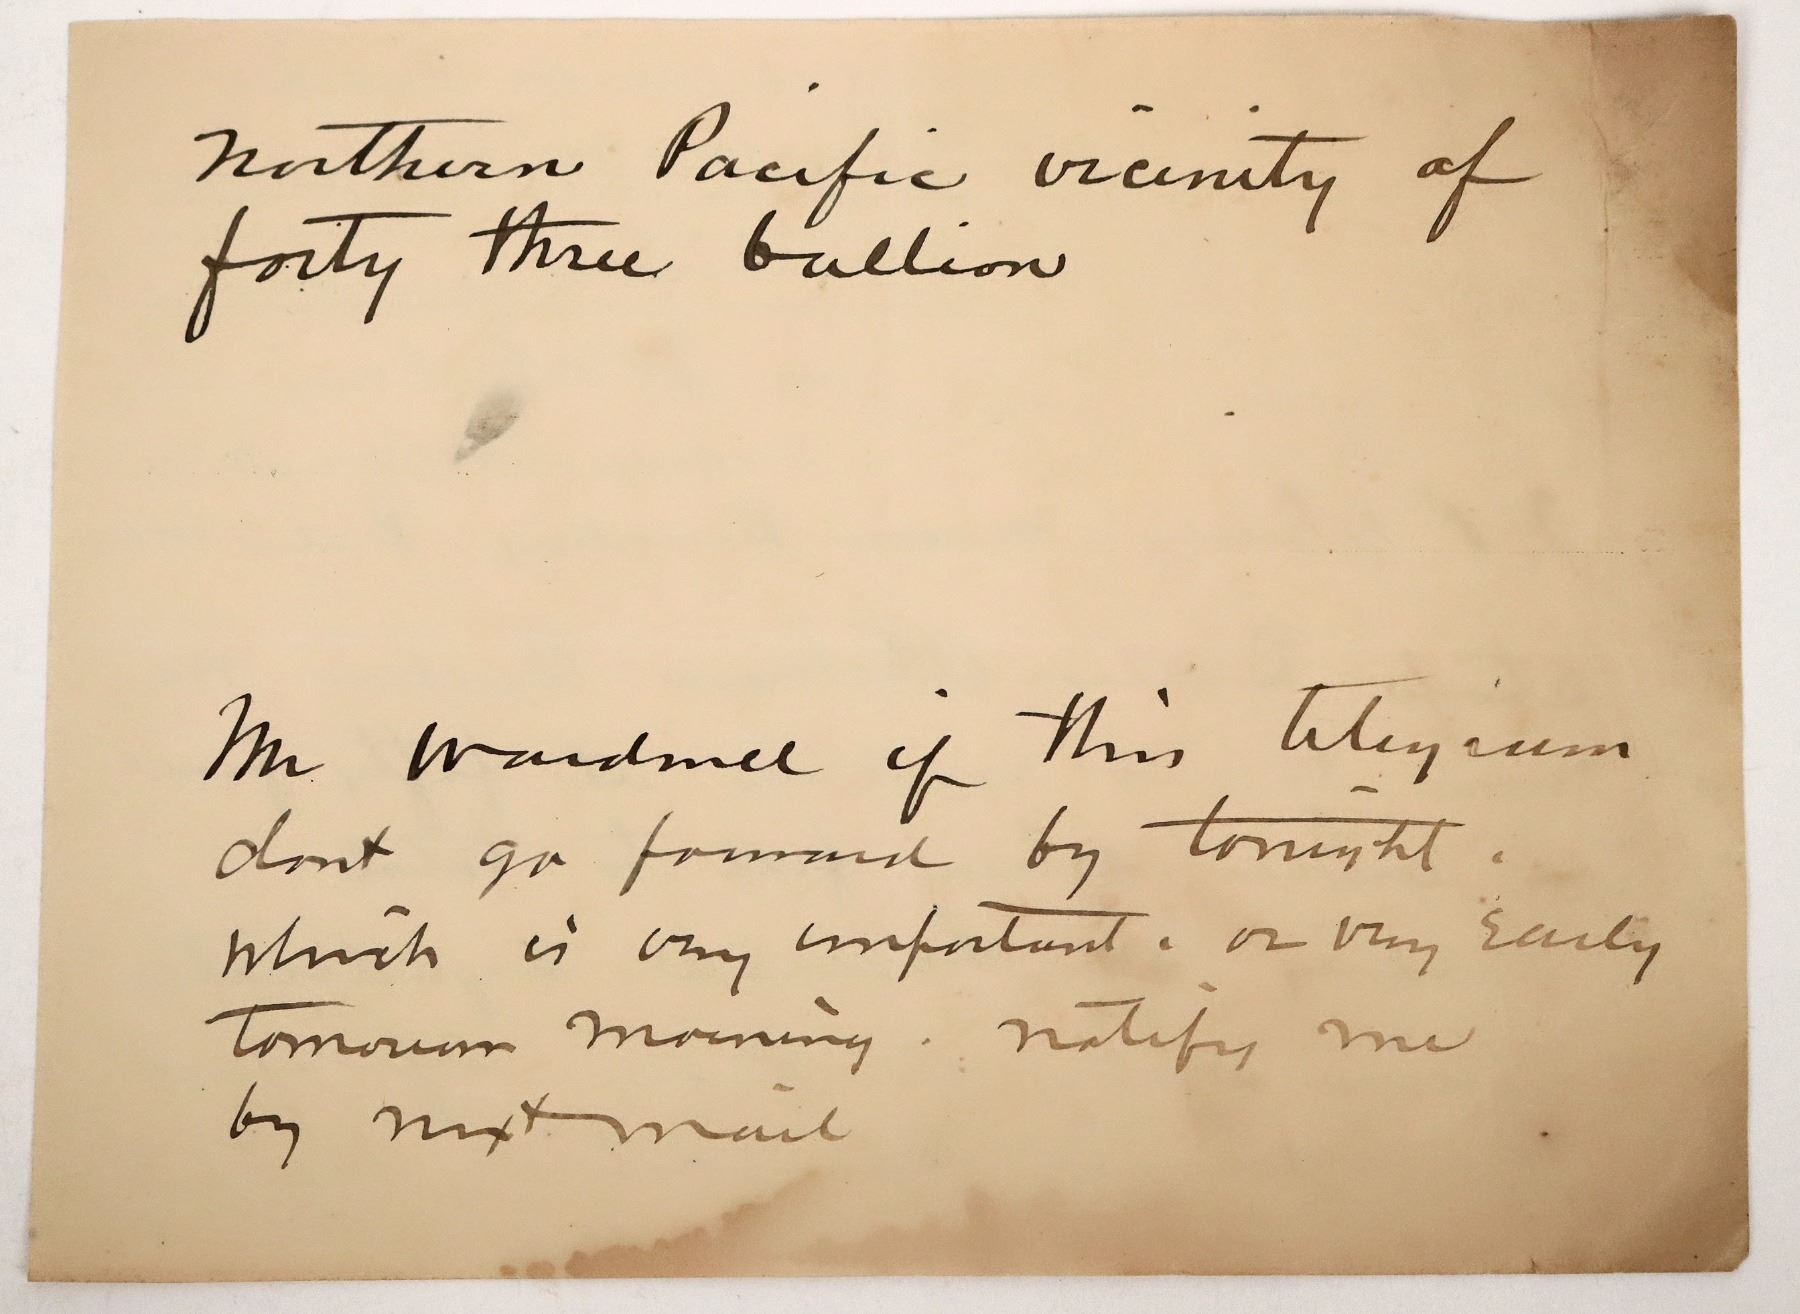 Northern Pacific vicinity of
forty three bullion
Mr Wardnell if this telegram
dont go forward by tonight.
which is very important. or very Early
tomorrow morning. notify me
by next mail